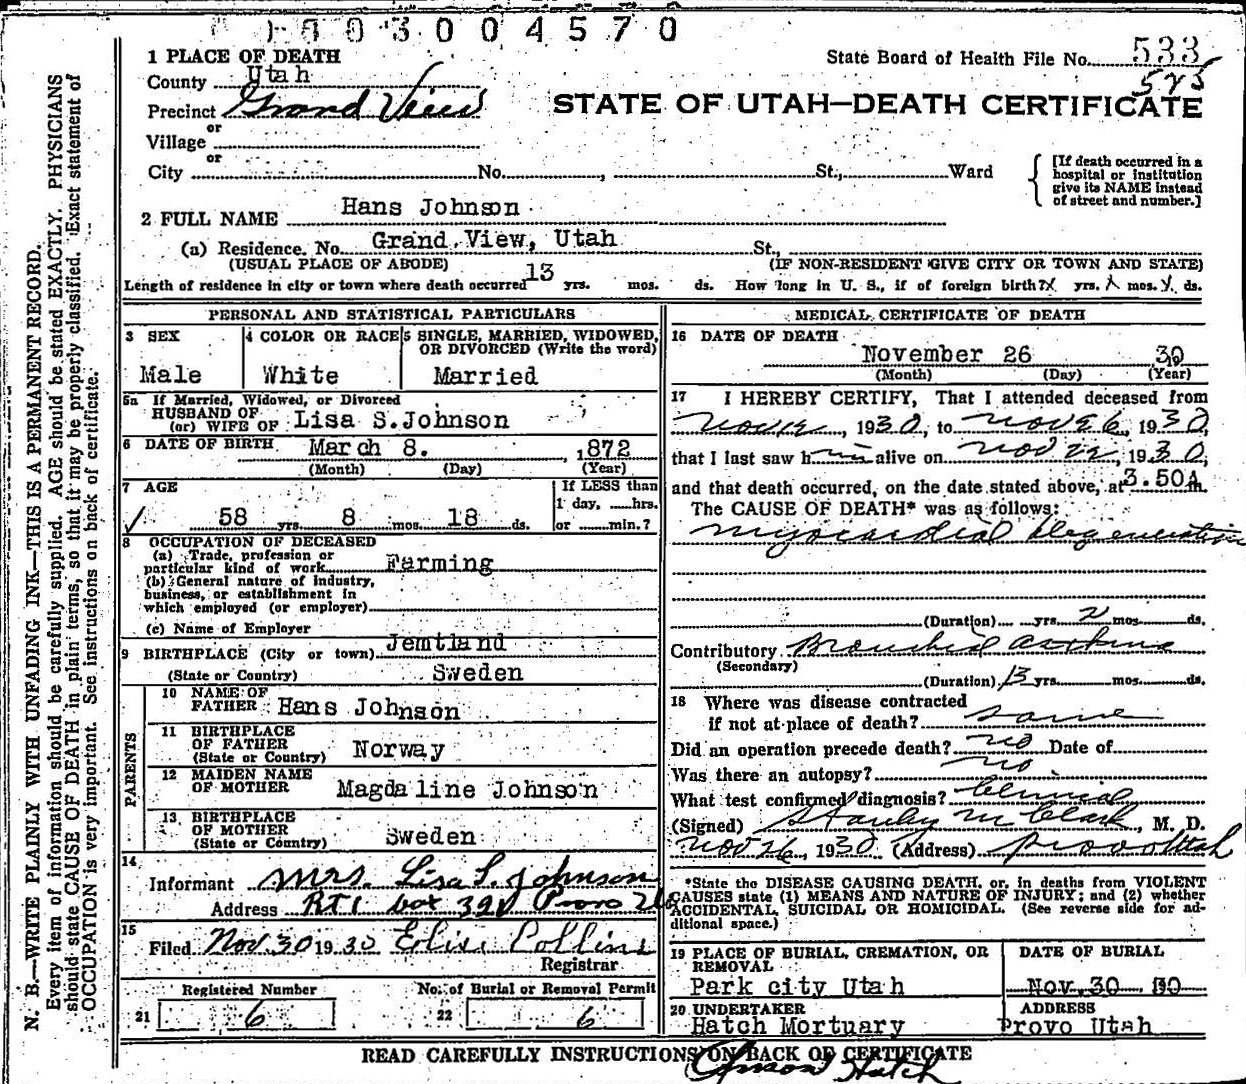 003004570
1 PLACE OF DEATH
State Board of Health File No. 533
County Utah
525
Precinct Grand View
STATE OF UTAH—DEATH CERTIFICATE
or
Village
or
City No. , St., Ward
[If death occurred in a hospital or institution give its NAME instead of street and number.]
2 FULL NAME Hans Johnson
(a) Residence. No. Grand View, Utah St.,
(USUAL PLACE OF ABODE) (IF NON-RESIDENT GIVE CITY OR TOWN AND STATE)
Length of residence in city or town where death occurred 13 yrs. mos. ds. How long in U. S., if of foreign birth? yrs. mos. ds.
PERSONAL AND STATISTICAL PARTICULARS
3 SEX 4 COLOR OR RACE 5 SINGLE, MARRIED, WIDOWED, OR DIVORCED (Write the word)
Male White Married
5a If Married, Widowed, or Divorced
HUSBAND OF
(or) WIFE OF Lisa S. Johnson
6 DATE OF BIRTH March 8. , 1872
(Month) (Day) (Year)
7 AGE If LESS than
1 day, hrs.
58 yrs. 8 mos. 18 ds. or min.?
8 OCCUPATION OF DECEASED
(a) Trade, profession or
particular kind of work Farming
(b) General nature of industry,
business, or establishment in
which employed (or employer)
(c) Name of Employer
9 BIRTHPLACE (City or town) Jemtland
(State or Country) Sweden
PARENTS
10 NAME OF
FATHER Hans Johnson
11 BIRTHPLACE
OF FATHER
(State or Country) Norway
12 MAIDEN NAME
OF MOTHER Magdaline Johnson
13 BIRTHPLACE
OF MOTHER
(State or Country) Sweden
14
Informant Mrs. Lisa S. Johnson
Address RT 1 box 390 Provo
15
Filed Nov 30 1930 Registrar
Registered Number No. of Burial or Removal Permit
21 6 22 6
MEDICAL CERTIFICATE OF DEATH
16 DATE OF DEATH
November 26 30
(Month) (Day) (Year)
17 I HEREBY CERTIFY, That I attended deceased from
Nov 12, 1930, to Nov 26, 1930,
that I last saw him alive on Nov 22, 1930,
and that death occurred, on the date stated above, at 3.50A m.
The CAUSE OF DEATH* was as follows:
Myocardial degeneration
(Duration) yrs. 2 mos. ds.
Contributory Bronchial asthma
(Secondary)
(Duration) 13 yrs. mos. ds.
18 Where was disease contracted
if not at place of death? same
Did an operation precede death? no Date of
Was there an autopsy? no
What test confirmed diagnosis? Clinical
(Signed) Stanley M Clark, M. D.
Nov 26, 1930 (Address) Provo Utah
*State the DISEASE CAUSING DEATH, or, in deaths from VIOLENT
CAUSES state (1) MEANS AND NATURE OF INJURY; and (2) whether
ACCIDENTAL, SUICIDAL OR HOMICIDAL. (See reverse side for ad-
ditional space.)
19 PLACE OF BURIAL, CREMATION, OR REMOVAL DATE OF BURIAL
Park city Utah Nov. 30 30
20 UNDERTAKER ADDRESS
Hatch Mortuary Provo Utah
READ CAREFULLY INSTRUCTIONS ON BACK OF CERTIFICATE
Hatch
N. B.—WRITE PLAINLY WITH UNFADING INK—THIS IS A PERMANENT RECORD.
Every item of information should be carefully supplied. AGE should be stated EXACTLY. PHYSICIANS
should state CAUSE OF DEATH in plain terms, so that it may be properly classified. Exact statement of
OCCUPATION is very important. See instructions on back of certificate.